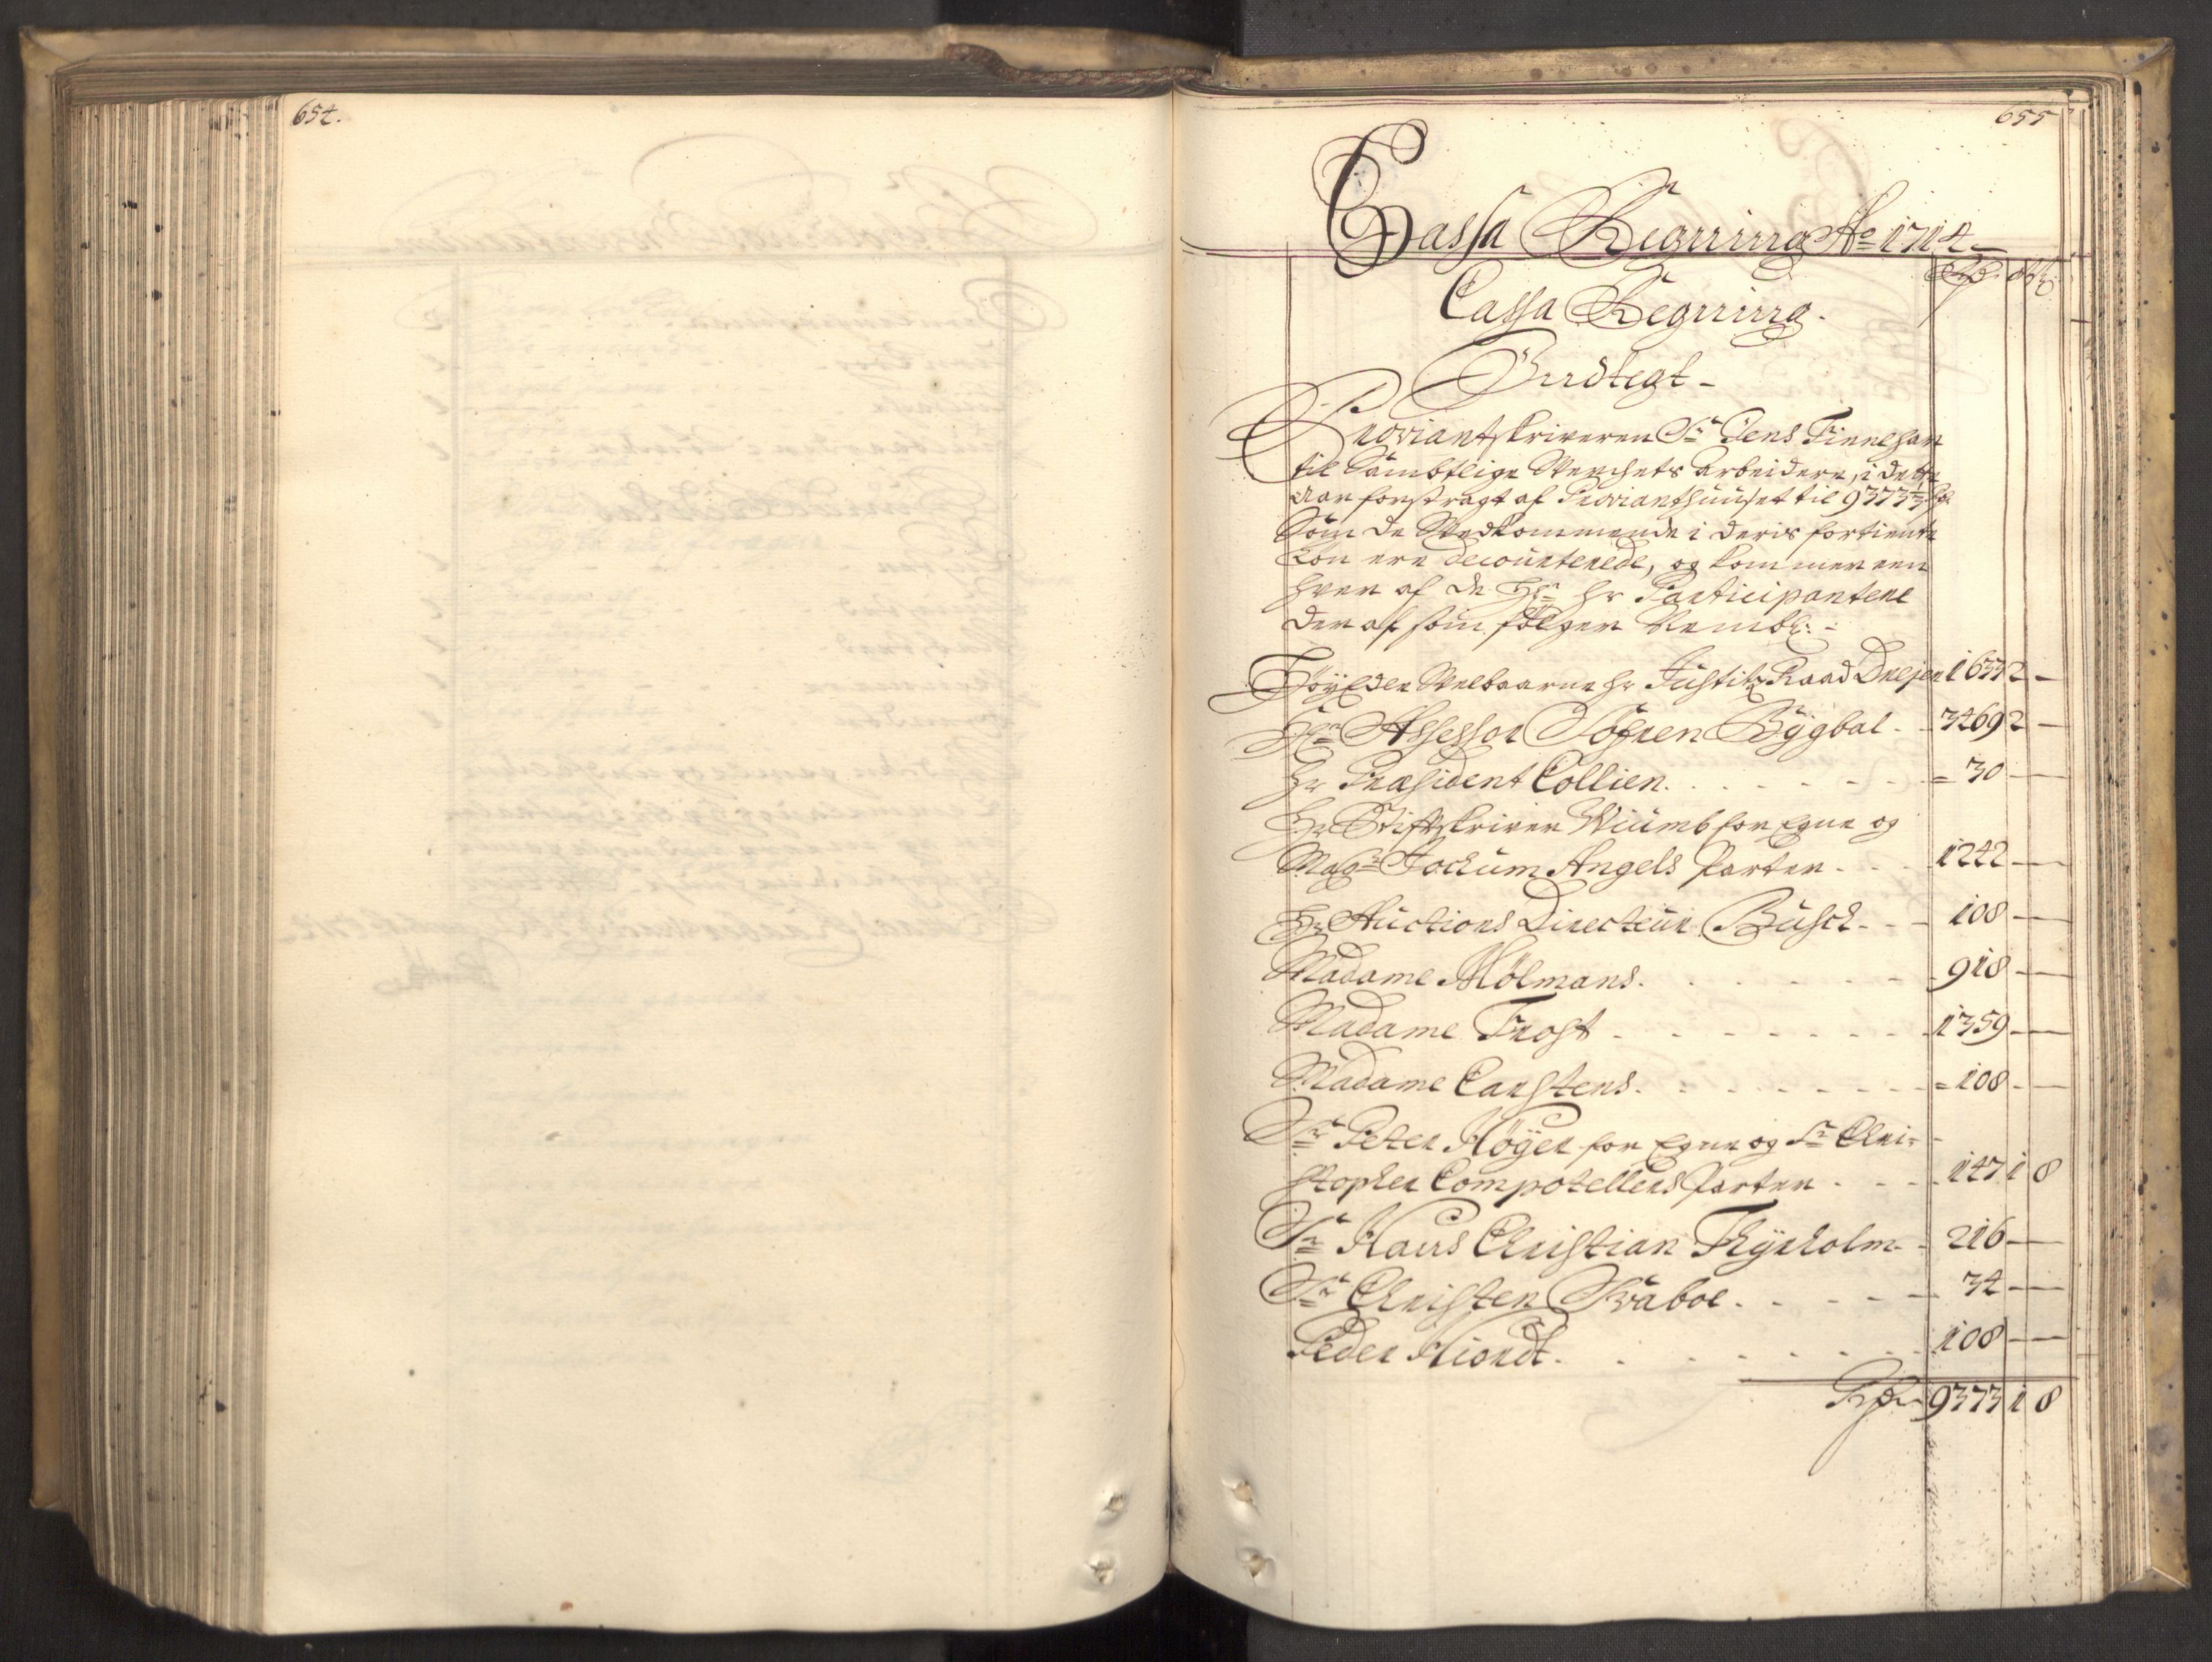 654.
655
Cassa Regning Ao 1714
Rdr
Cassa Regning.
Indtegt
Proviantskriveren Sr Jens Finnesøn
til Sambtlige Werchets arbeidere, i dette
Aar forstragt af Provianthuuset til 9373
Som de Wedkommende i deris fortiente
Løn ere decourterede, og kommer een
hver af de Hrr Participantere
der af som følger Nembl:
HøyEdle Welbaarne Hr Justitz Raad Dreyer 1633 2 -
Hr Assessor Søfren Bygbal - 3469 2 -
Hr Præsident Collien - 30 -
Hr Stiftskriver Wiumb for Egne og
Magr Jochum Angels Parter - 1242 -
Hr Auctions Directeur Busch - 108 -
Madame Mølmans - 918 -
Madame Frost - 1359 -
Madame Carstens - 108 -
Sr Peter Høyer for Egne og Sr Chri-
stopher Compotellers Parter - 147 1 8
Sr Hans Christian Thyrholm - 216 -
Sr Christen Svaboe - 34 -
Peder Hiordt - 108 -
Rdr 9373 1 8